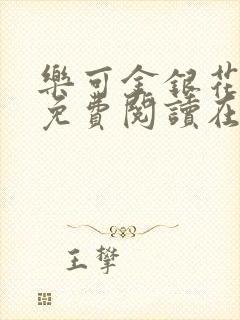 樂可金銀花
免費閱讀在
王攀